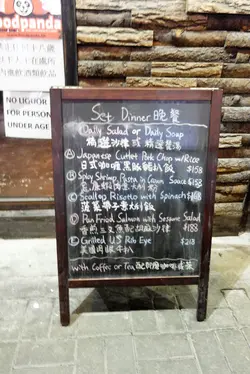 foodpanda
NO LIQUOR
FOR PERSON
UNDER AGE
Set Dinner 晚餐
Daily Salad or Daily Soap
精選沙律 或 精選餐湯
A Japanese Cutlet Pork Chop w/Rice
日式咖喱黑豚豬扒飯 $158
B Spicy Shrimp Pasta in Cream Sauce $158
C Scallop Risotto with Spinach $168
菠菜帶子意大利飯
D Pan Fried Salmon with Sesame Salad
$188
E Grilled US Rib Eye $218
美國肉眼牛扒
with Coffee or Tea 配即磨咖啡或茶